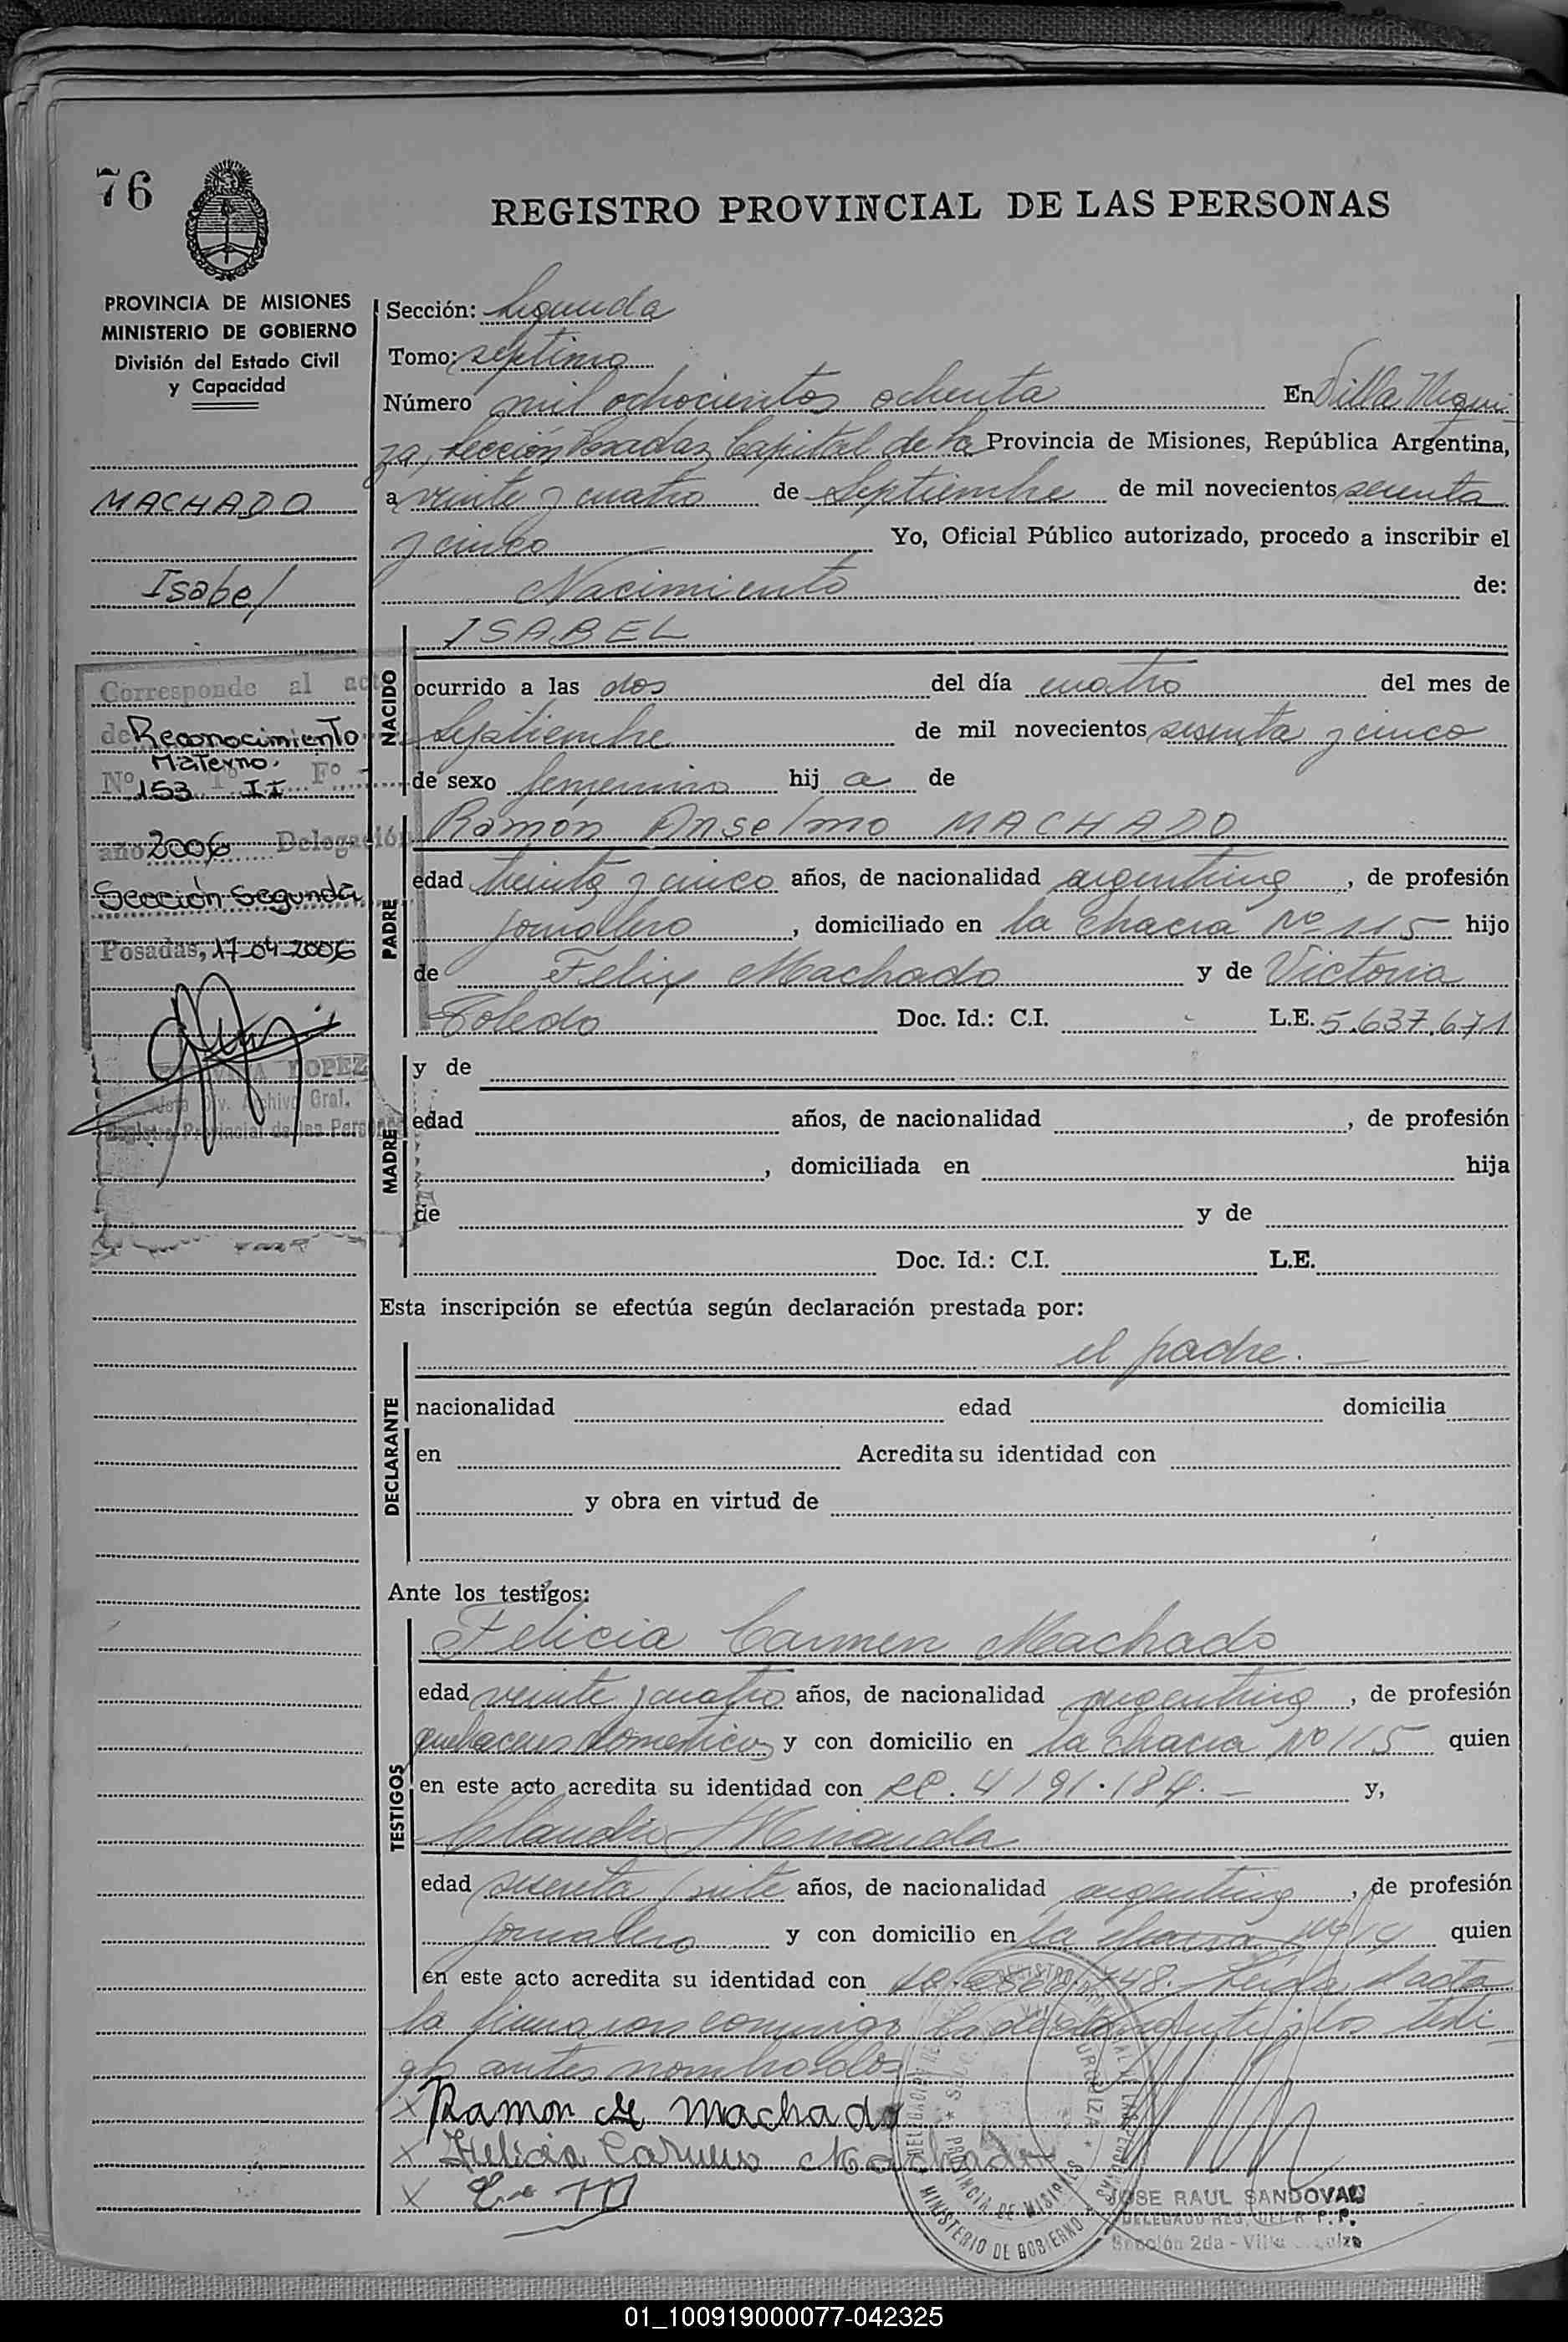 76
REGISTRO PROVINCIAL DE LAS PERSONAS
PROVINCIA DE MISIONES
MINISTERIO DE GOBIERNO
División del Estado Civil
y Capacidad
MACHADO
Isabel
Corresponde al acto
de Reconocimiento
Materno.
Nº 153 Tº II Fº
año 2006 Delegación
Sección Segunda
Posadas, 17-04-2006
LOPEZ
Jefe Div. Archivo Gral.
Registro Provincial de las Personas
Sección: Segunda
Tomo: septimo
Número mil ochocientos ochenta En Villa Urqui
za, Sección Posadas, Capital de la Provincia de Misiones, República Argentina,
a veinte y cuatro de Septiembre de mil novecientos sesenta
y cinco Yo, Oficial Público autorizado, procedo a inscribir el
Nacimiento de:
NACIDO
ISABEL
ocurrido a las dos del día cuatro del mes de
Septiembre de mil novecientos sesenta y cinco
de sexo femenino hij a de
PADRE
Ramón Anselmo MACHADO
edad treinta y cinco años, de nacionalidad argentina, de profesión
jornalero, domiciliado en la chacra Nº 115 hijo
de Felix Machado y de Victoria
Toledo Doc. Id.: C.I. L.E. 5.637.671
MADRE
y de
edad años, de nacionalidad , de profesión
, domiciliada en hija
de y de
Doc. Id.: C.I. L.E.
Esta inscripción se efectúa según declaración prestada por:
DECLARANTE
el padre. —
nacionalidad edad domicilia
en Acredita su identidad con
y obra en virtud de
Ante los testigos:
TESTIGOS
Felicia Carmen Machado
edad veinte y cuatro años, de nacionalidad argentina, de profesión
quehaceres domesticos y con domicilio en la chacra Nº 115 quien
en este acto acredita su identidad con LC. 4191.184. — y,
Claudio Miranda
edad sesenta y siete años, de nacionalidad argentina, de profesión
jornalero y con domicilio en la chacra Nº quien
en este acto acredita su identidad con Leida el acta
la firman conmigo y los testi
gos antes nombrados
x Ramon A Machado
x Felicia Carmen Machado
x
MINISTERIO DE GOBIERNO
PROVINCIA DE MISIONES
JOSE RAUL SANDOVAL
DELEGADO REG. DEL R. P. P.
Sección 2da - Villa Urquiza
01_100919000077-042325